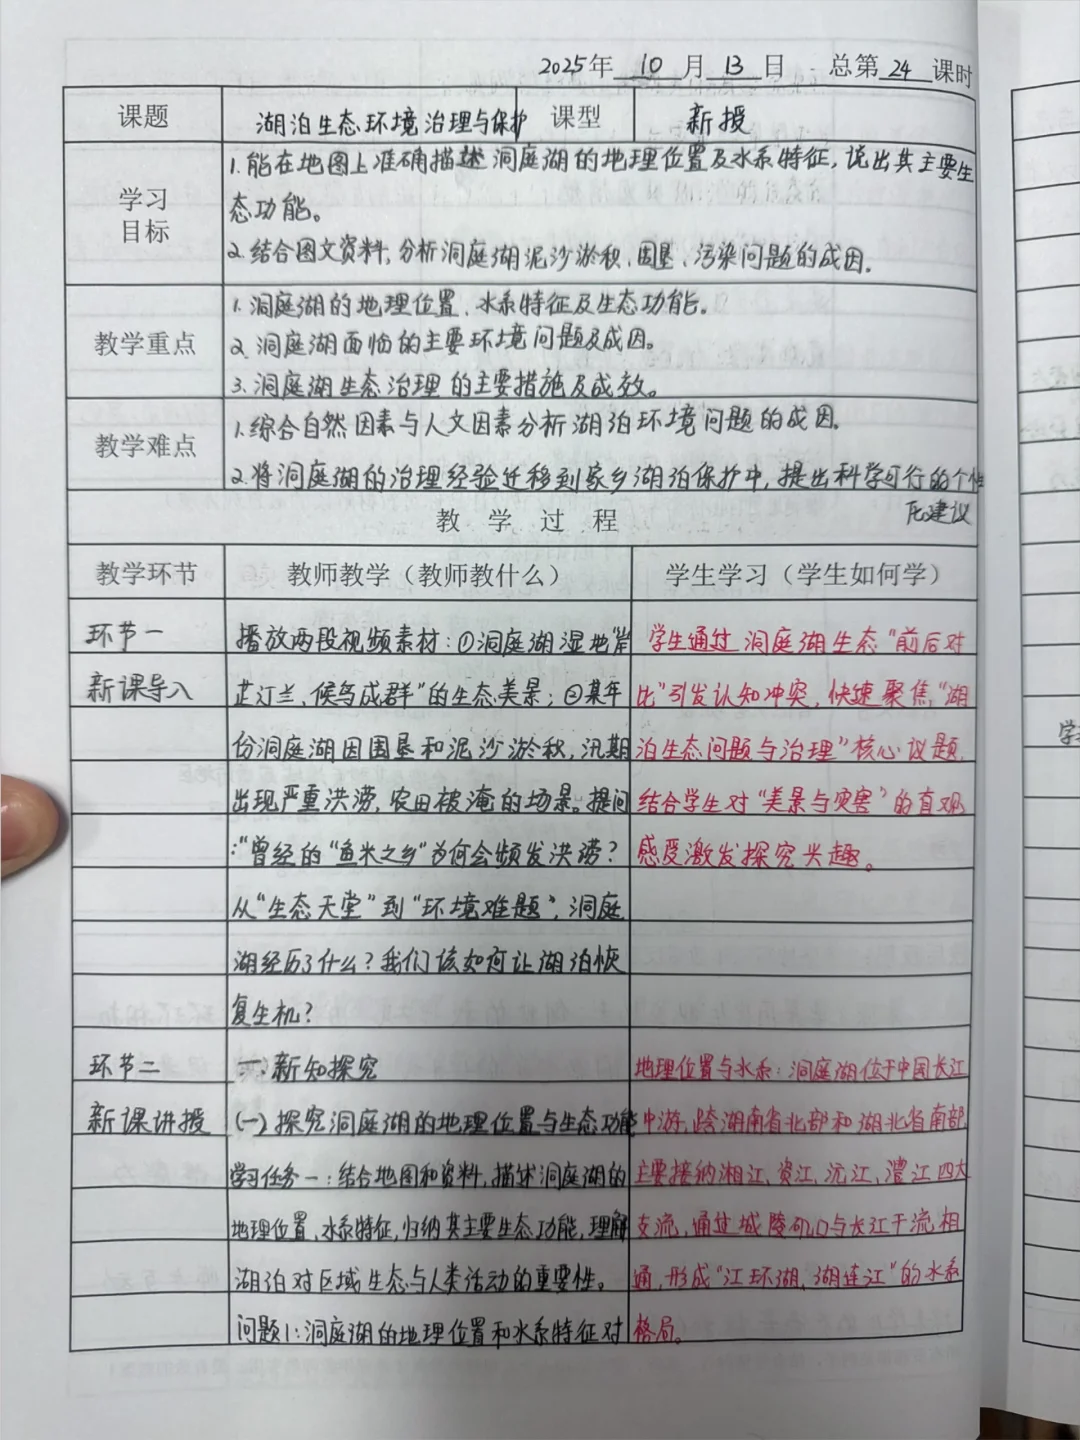 2025年 10 月 13 日 总第 24 课时
课题 湖泊生态环境治理与保护 课型 新授
学习目标
1.能在地图上准确描述洞庭湖的地理位置及水系特征,说出其主要生
态功能。
2.结合图文资料,分析洞庭湖泥沙淤积、围垦、污染问题的成因。
教学重点
1.洞庭湖的地理位置、水系特征及生态功能。
2.洞庭湖面临的主要环境问题及成因。
3.洞庭湖生态治理的主要措施及成效。
教学难点
1.综合自然因素与人文因素分析湖泊环境问题的成因。
2.将洞庭湖的治理经验迁移到家乡湖泊保护中,提出科学可行的个性
化建议
教学过程
教学环节 教师教学(教师教什么) 学生学习(学生如何学)
环节一
新课导入
播放两段视频素材:①洞庭湖湿地"岸
芷汀兰、候鸟成群"的生态美景;②某年
份洞庭湖因围垦和泥沙淤积,汛期
出现严重洪涝,农田被淹的场景。提问
:"曾经的"鱼米之乡"为何会频发洪涝?
从"生态天堂"到"环境难题",洞庭
湖经历了什么?我们该如何让湖泊恢
复生机?
学生通过洞庭湖生态"前后对
比"引发认知冲突,快速聚焦"湖
泊生态问题与治理"核心议题,
结合学生对"美景与灾害"的直观
感受激发探究兴趣。
环节二
新课讲授
二、新知探究
(一)探究洞庭湖的地理位置与生态功能
学习任务一:结合地图和资料,描述洞庭湖的
地理位置、水系特征,归纳其主要生态功能,理解
湖泊对区域生态与人类活动的重要性。
问题1:洞庭湖的地理位置和水系特征对
地理位置与水系:洞庭湖位于中国长江
中游,跨湖南省北部和湖北省南部,
主要接纳湘江,资江,沅江,澧江四大
支流,通过城陵矶口与长江干流相
通,形成"江环湖,湖连江"的水系
格局。